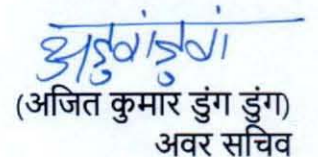 (अजित कुमार डुंग डुंग)
अवर सचिव